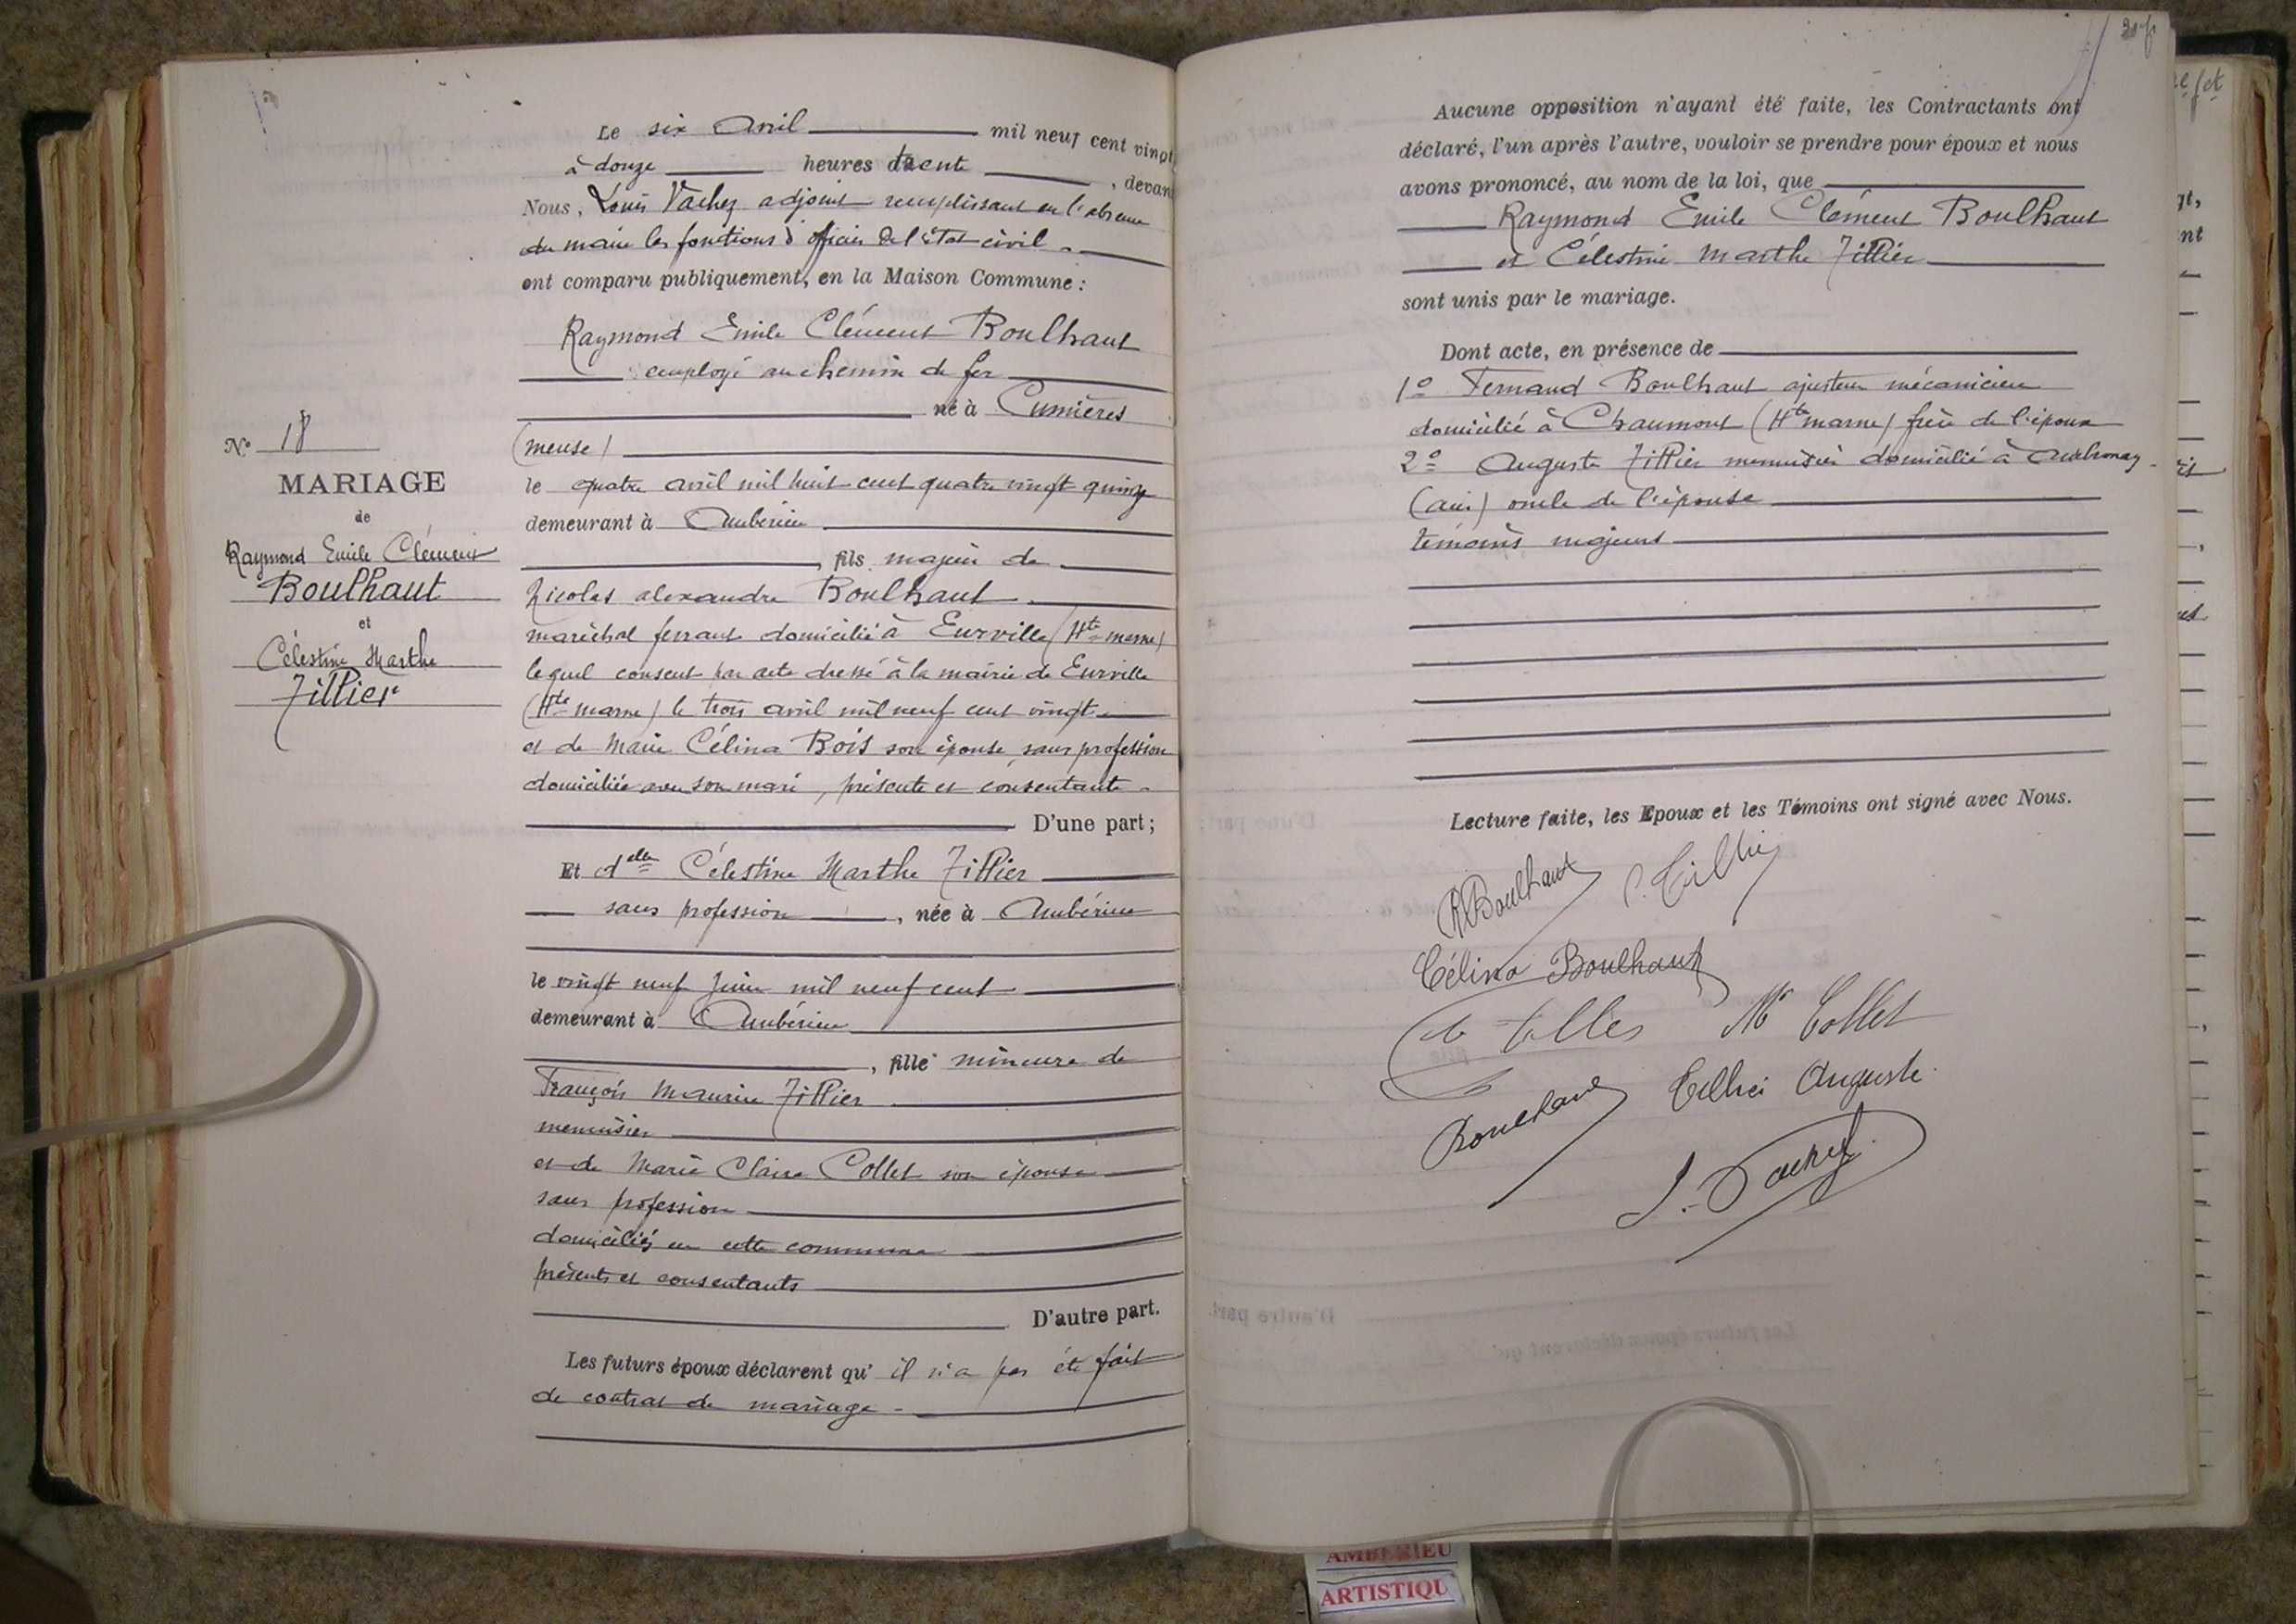 Le six Avril mil neuf cent vingt
à douze heures trente, devant
Nous, Louis Vachez adjoint remplissant en l'absence
du maire les fonctions d'officier de l'état civil
ont comparu publiquement, en la Maison Commune :
Raymond Emile Clément Boulhaut
employé au chemin de fer
né à Cumières
(meuse)
le quatre avril mil huit cent quatre vingt quinze
demeurant à Ambérieu
, fils majeur de
Nicolas alexandre Boulhaut
maréchal ferrant domicilié à Eurville (Hte marne)
lequel consent par acte dressé à la mairie de Eurville
(Hte marne) le trois avril mil neuf cent vingt
et de Marie Célina Bois son épouse, sans profession
domiciliée avec son mari, présente et consentante
D'une part;
Et delle Célestine Marthe Tillier
sans profession, née à Ambérieu
le vingt neuf Juin mil neuf cent
demeurant à Ambérieu
, fille mineure de
François Maurice Tillier
menuisier
et de Marie Claire Collet son épouse
sans profession
domiciliés en cette commune
présents et consentants
D'autre part.
Les futurs époux déclarent qu'il n'a pas été fait
de contrat de mariage
N° 18
MARIAGE
de
Raymond Emile Clément
Boulhaut
et
Célestine Marthe
Tillier
Aucune opposition n'ayant été faite, les Contractants ont
déclaré, l'un après l'autre, vouloir se prendre pour époux et nous
avons prononcé, au nom de la loi, que
Raymond Emile Clément Boulhaut
et Célestine Marthe Tillier
sont unis par le mariage.
Dont acte, en présence de
1° Fernand Boulhaut ajusteur mécanicien
domicilié à Chaumont (Hte marne) frère de l'époux
2° Auguste Tillier menuisier domicilié à Ambronay
(ain) oncle de l'épouse
témoins majeurs
Lecture faite, les Epoux et les Témoins ont signé avec Nous.
R Boulhaut C. Tillier
Célina Boulhaut
Tillier M Collet
Boulhaut Tillier Auguste
L. Vachez
AMBERIEU
ARTISTIQU